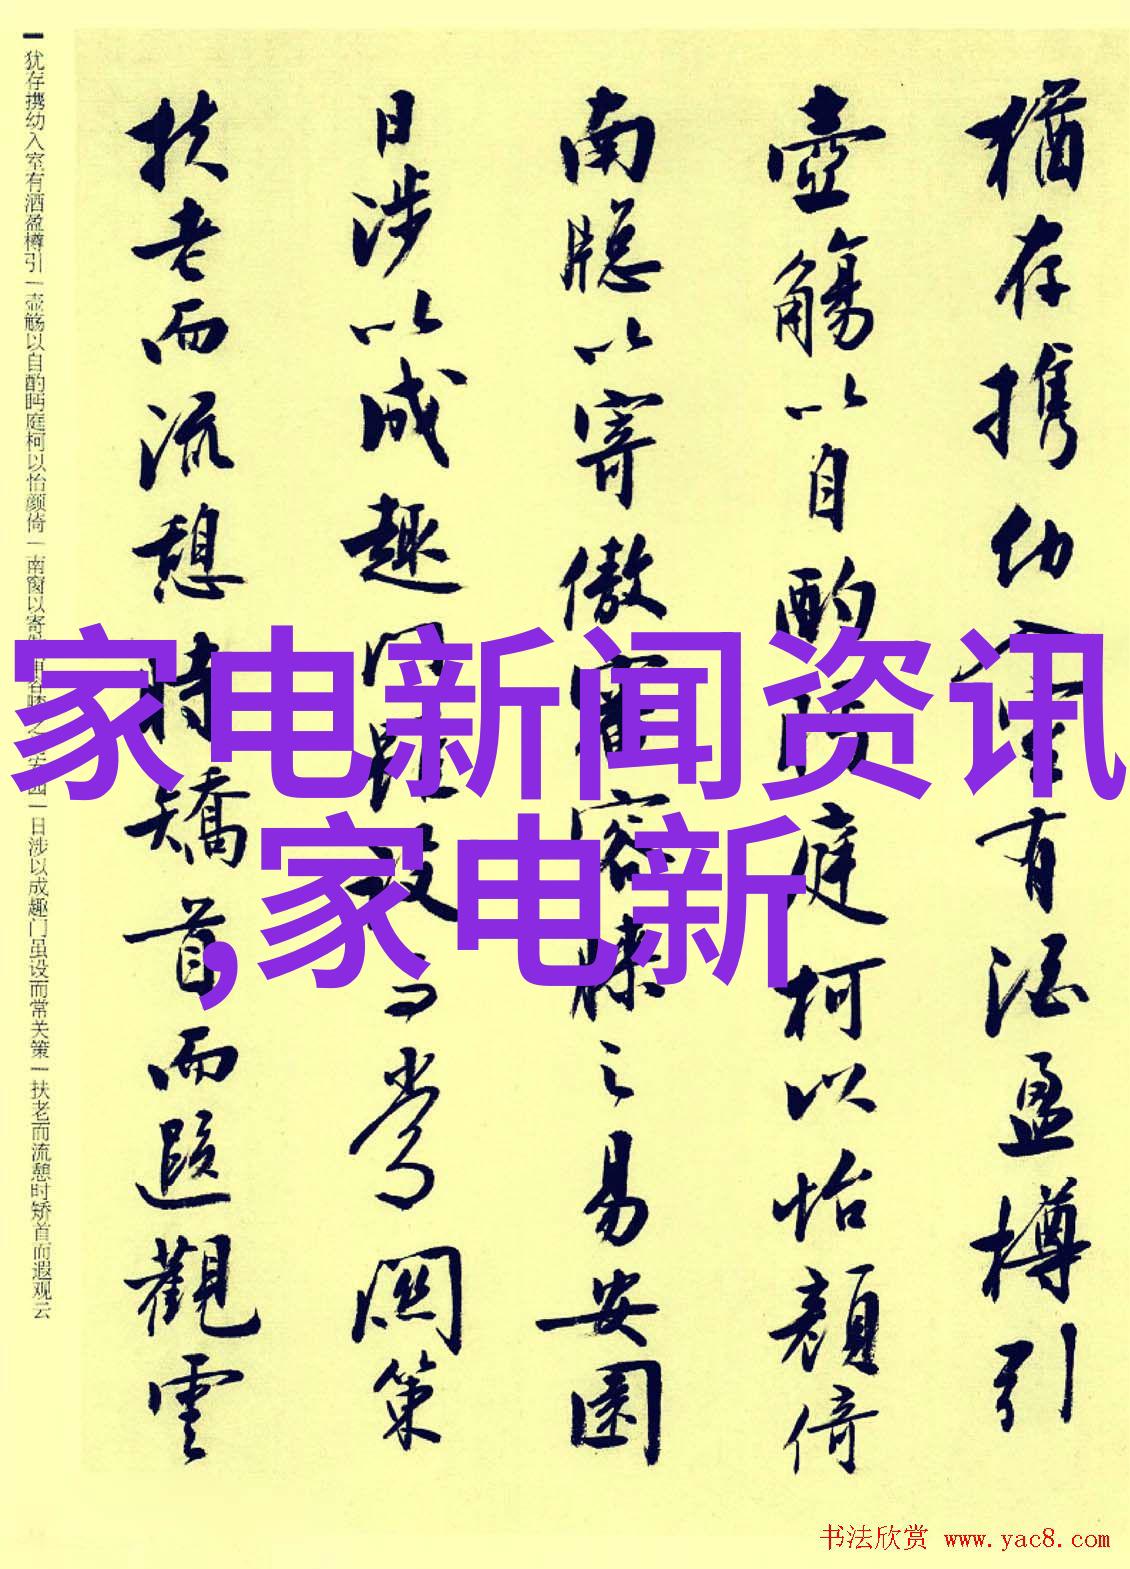 家电新闻资讯
,家电新
猶存携幼入室有酒盈樽引
壺觴以自酌眄庭柯以怡顏倚
南牕以寄傲審容膝之易安園
日涉以成趣門雖設而常關策
扶老而流憩時矯首而遐觀雲
犹存携幼入室有洒盈樽引|壶觞以自酌眄庭柯以怡颜倚|南窗以寄膝之安园|日涉以成趣门虽设而常关策|扶老而流憩时矫首而遐观云
书法欣赏 www.yac8.com